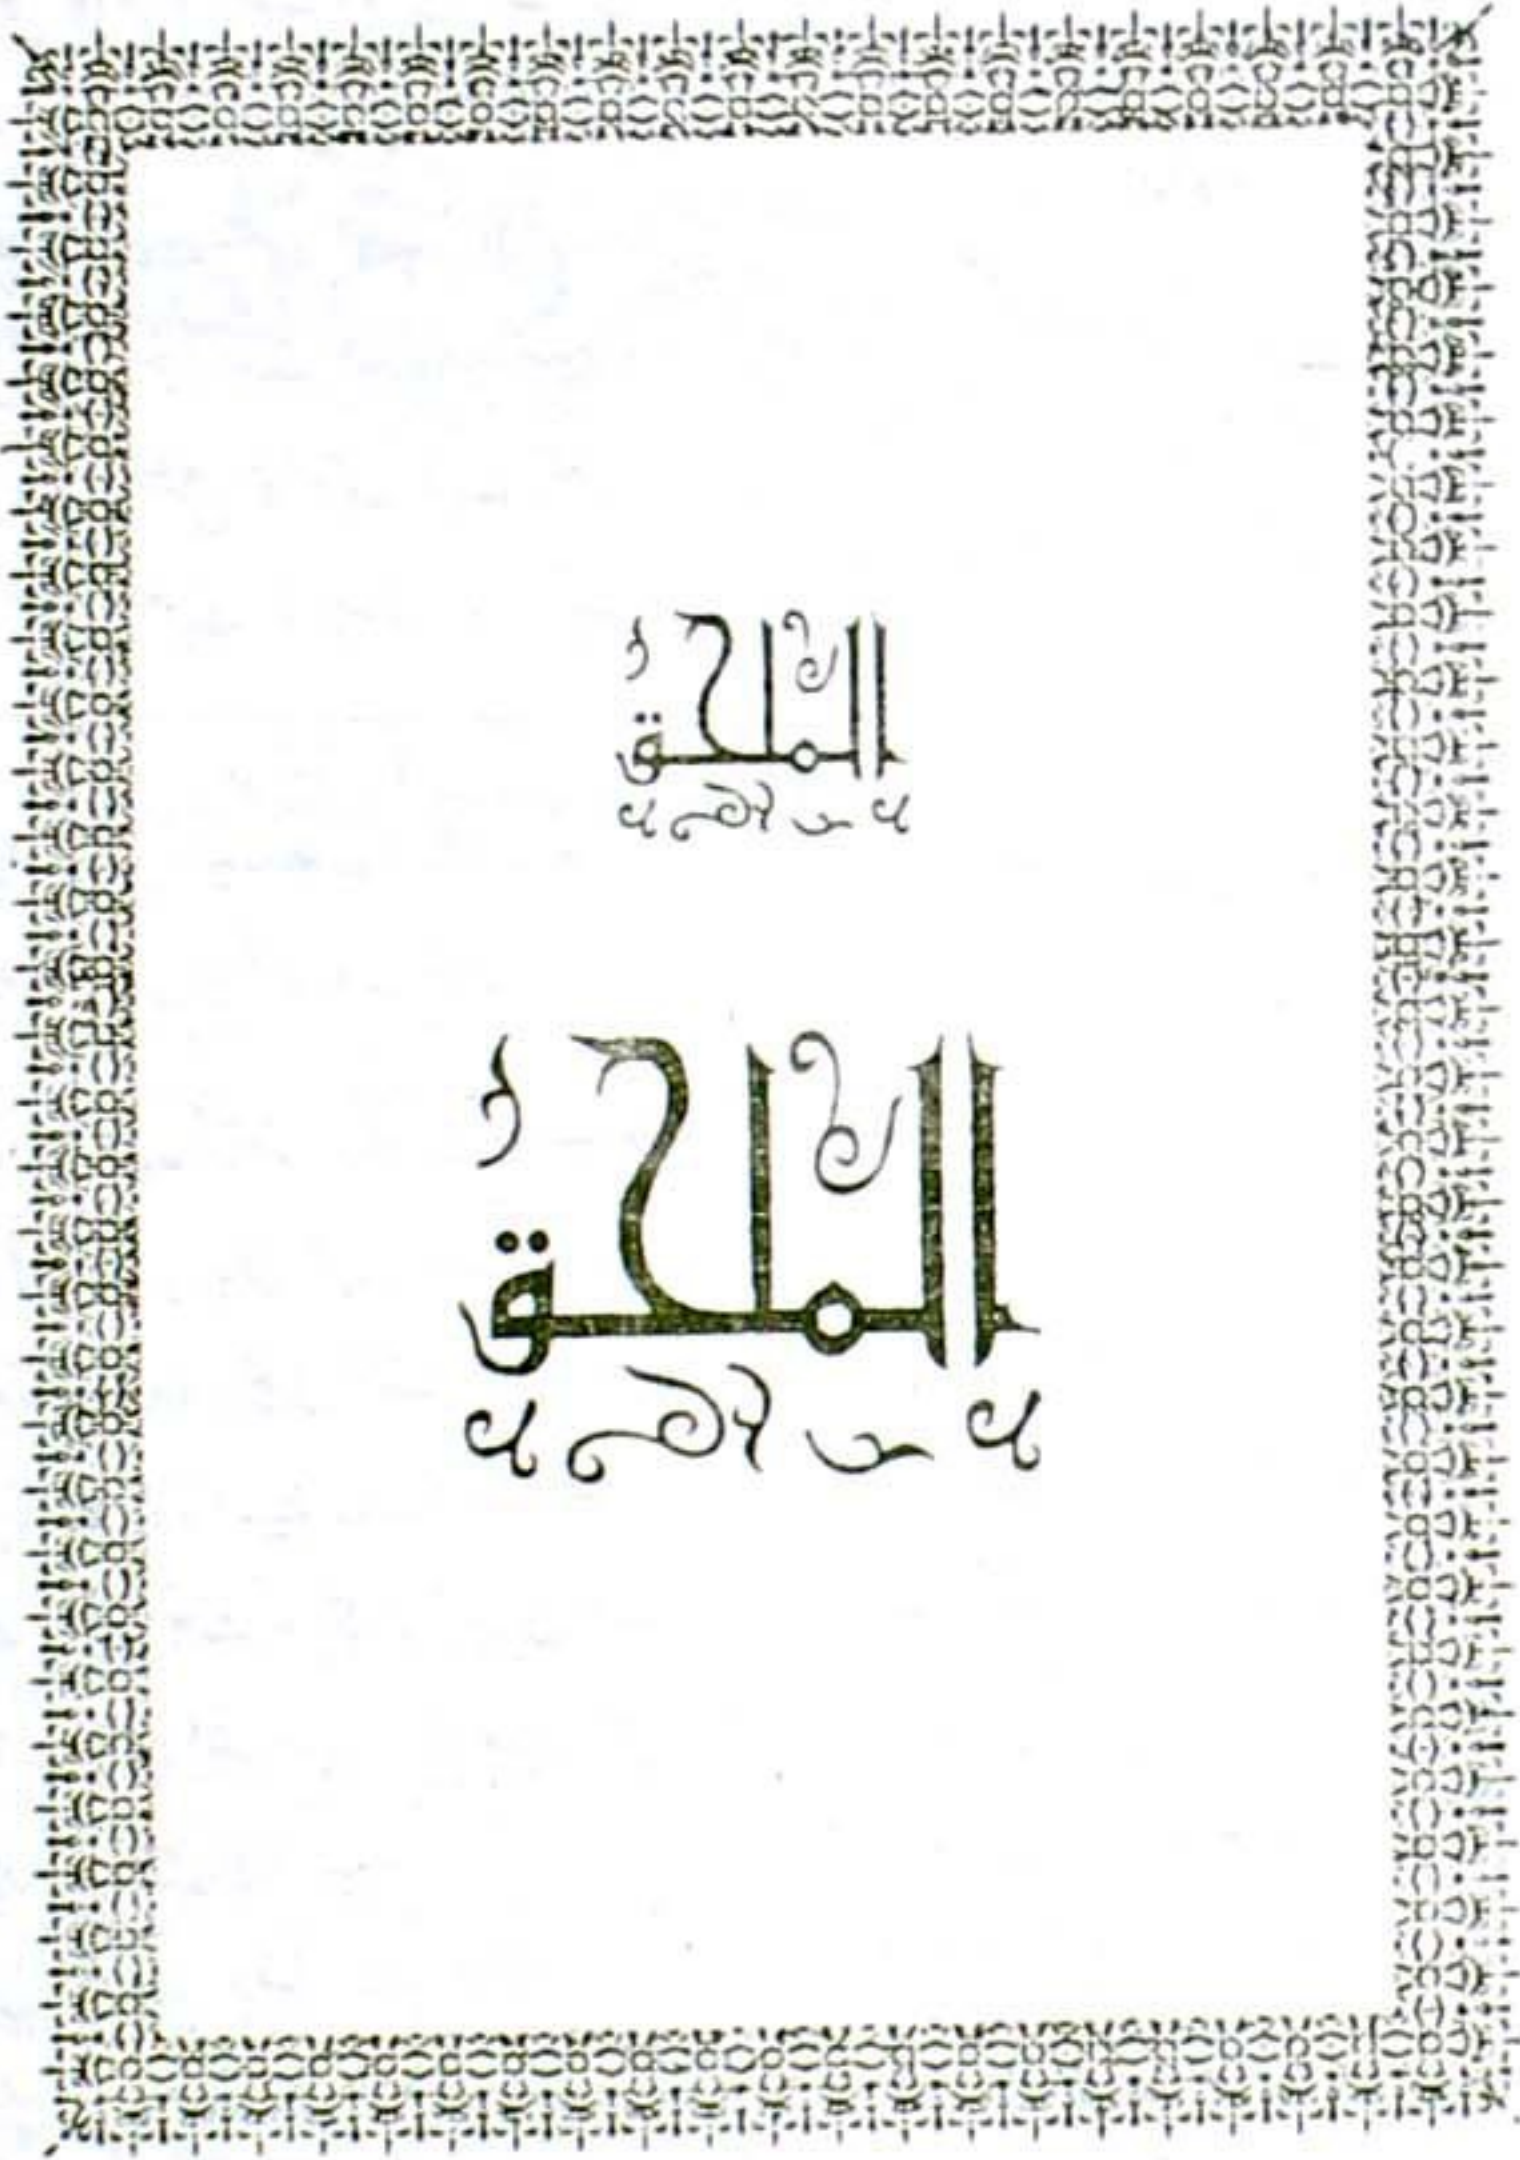 الملحق
الملحق